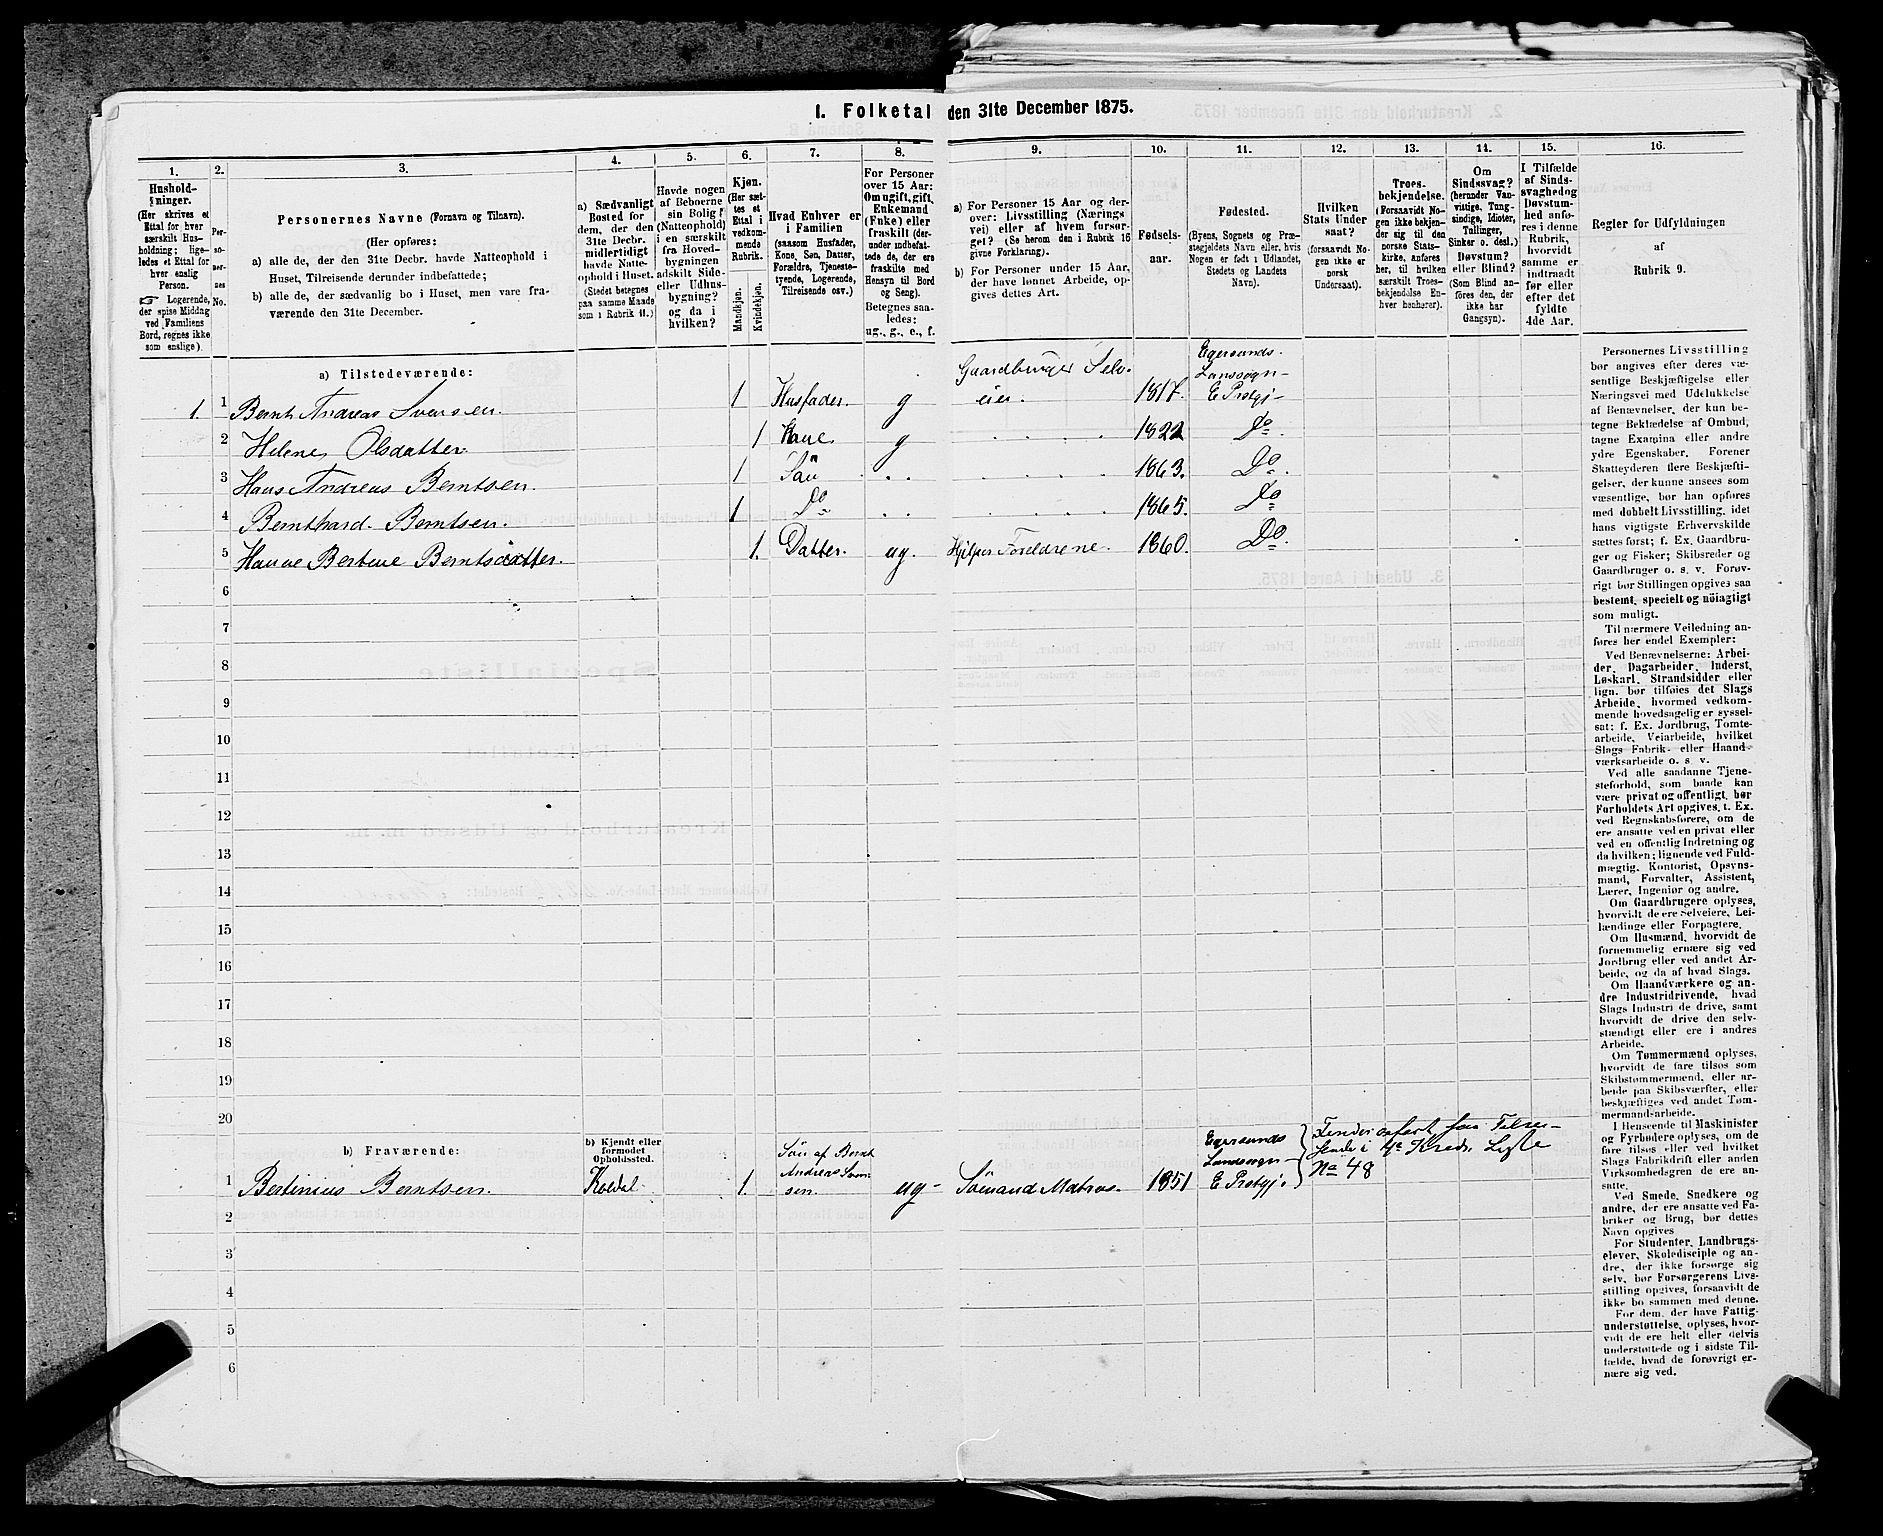 1. Folketal den 31te December 1875.
1. 2. 3. 4. 5. 6. 7. 8. 9. 10. 11. 12. 13. 14. 15. 16.
Hushold-
ninger.
(Her skrives et
Ettal for hver
særskilt Hus-
holdning; lige-
ledes et Ettal for
hver enslig
Person.
☞ Logerende,
der spise Middag
ved Familiens
Bord, regnes ikke
som enslige).
Per-
so-
ner-
nes
No.
Personernes Navne (Fornavn og Tilnavn).
(Her opføres:
a) alle de, der den 31te Decbr. havde Natteophold i
Huset, Tilreisende derunder indbefattede;
b) alle de, der sædvanlig bo i Huset, men vare fra-
værende den 31te December.
a) Sædvanligt
Bosted for
dem, der den
31te Decbr.
midlertidigt
havde Natte-
ophold i Huset.
(Stedet betegnes
paa samme Maade
som i Rubrik 11.)
Havde nogen
af Beboerne
sin Bolig
(Natteophold)
i en særskilt
fra Hoved-
bygningen
adskilt Side-
eller Udhus-
bygning?
og da i
hvilken?
Kjøn.
(Her sæt-
tes et
Ettal i
vedkom-
mende
Rubrik.
Mandkjøn.
Kvindekjøn.
Hvad Enhver er
i Familien
(saasom Husfader,
Kone, Søn, Datter,
Forældre, Tjeneste-
tyende, Logerende,
Tilreisende osv.)
For Personer
over 15 Aar:
Om ugift, gift,
Enkemand
(Enke) eller
fraskilt (der-
under indbefat-
tede de, der ere
fraskilte med
Hensyn til Bord
og Seng).
Betegnes saa-
ledes:
ug., g., e., f.
a) For Personer 15 Aar og der-
over: Livsstilling (Nærings
vei) eller af hvem forsør-
get? (Se herom den i Rubrik 16
givne Forklaring).
b) For Personer under 15 Aar,
der have lønnet Arbeide, op-
gives dettes Art.
Fødsels-
aar.
Fødested.
(Byens, Sognets og Præ-
stegjeldets Navn eller, hvis
Nogen er født i Udlandet,
Stedets og Landets
Navn).
Hvilken
Stats Under
saat?
(forsaavidt No-
gen ikke er
norsk
Undersaat).
Troes-
bekjendelse.
(Forsaavidt No-
gen ikke bekjen-
der sig til den
norske Stats-
kirke, anføres
her, til hvilken
særskilt Troes-
bekjendelse En-
hver henhører).
Om
Sindssvag?
(herunder Van-
vittige, Tung-
sindige, Idioter,
Tullinger,
Sinker o. desl.)
Døvstum?
eller Blind?
(Som Blind an-
føres den, der
ikke har
Gangsyn).
I Tilfælde
af Sinds-
svaghed og
Døvstum-
hed anfø-
res i denne
Rubrik,
hvorvidt
samme er
indtraadt
før eller
efter det
fyldte
4de Aar.
Regler for Udfyldningen
af
Rubrik 9.
a) Tilstedeværende:
1. 1 Bernt Andreas Svensen 1 Husfader. g Gaardbruger Selv-
eier. 1817. Egersunds
Landsogn
E Prstgj
2 Helene Olsdatter 1 Kone g 1822 Do
3 Hans Andreas Berntsen. 1 Søn 1863. Do
4 Bernthard Berntsen. 1 Do 1865. Do
5 Hanne Bertine Berntsdatter. 1. Datter. ug. Hjelper Foreldrene. 1860. Do
6
7
8
9
10
11
12
13
14
15
16
17
18
19
20
b) Fraværende:
b) Kjendt eller
formodet
Opholdssted.
1 Bertinius Berntsen. Koldal 1. Søn af Bernt
Andreas Sven-
sen. ug Sømand Matros. 1851 Egersunds
Landsogn
E Prstgj. No 48
2
3
4
5
6
Personernes Livsstilling
bør angives efter deres væ-
sentlige Beskjæftigelse eller
Næringsvei med Udelukkelse
af Benævnelser, der kun be-
tegne Beklædelse af Ombud,
tagne Examina eller andre
ydre Egenskaber. Forener
Skatteyderen flere Beskjæfti-
gelser, der kunne ansees som
væsentlige, bør han opføres
med dobbelt Livsstilling, idet
hans vigtigste Erhvervskilde
sættes først; f. Ex. Gaardbru-
ger og Fisker; Skibsreder og
Gaardbruger o. s. v. Forøv-
rigt bør Stillingen opgives saa
bestemt, specielt og nöiagtigt
som muligt.
Til nærmere Veiledning an-
føres her endel Exempler:
Ved Benævnelserne: Arbei-
der, Dagarbeider, Inderst,
Løskarl, Strandsidder eller
lign. bør tilføies det Slags
Arbeide, hvormed vedkom-
mende hovedsagelig er syssel-
sat: f. Ex. Jordbrug, Tomte-
arbeide, Veiarbeide, hvilket
Slags Fabrik- eller Haand-
værksarbeide o. s. v.
Ved alle saadanne Tjene-
steforhold, som baade kan
være privat og offentligt, bør
Forholdets Art opgives, t. Ex.
ved Regnskabsførere, om de
ere ansatte ved en privat eller
ved en offentlig Indretning og
da hvilken; lignende ved Fuld-
mægtig, Kontorist, Opsyns-
mand, Forvalter, Assistent,
Lærer, Ingeniør og andre.
Om Gaardbrugere oplyses,
hvorvidt de ere Selveiere, Lei-
lændinge eller Forpagtere.
Om Husmænd, hvorvidt de
fornemmelig ernære sig ved
Jordbrug eller ved andet Ar-
beide, og da af hvad Slags.
Om Haandværkere og an-
dre Industridrivende, hvad
Slags Industri de drive, samt
hvorvidt de drive den selv-
stændigt eller ere i andres
Arbeide.
Om Tømmermænd oplyses,
hvorvidt de fare tilsøs som
Skibstømmermænd, eller ar-
beide paa Skibsværfter, eller
beskjæftiges ved andet Tøm-
mermand-arbeide.
I Henseende til Maskinister
og Fyrbødere oplyses, om de
fare tilsøs eller ved hvilket
Slags Fabrikdrift eller anden
Virksomhedsgren de ere an-
satte.
Ved Smede, Snedkere og
andre, der ere ansatte ved Fa-
briker og Brug, bør dettes
Navn opgives
For Studenter, Landbrugs-
elever, Skoledisciple og an-
dre, der ikke forsørge sig
selv, bør Forsørgerens Livs-
stilling opgives, forsaavidt de
ikke bo sammen med denne.
For dem, der have Fattig-
understøttelse, oplyses, hvor-
vidt de ere helt eller delvis
understøttede og i sidste Til-
fælde, hvad de forøvrigt er-
nære sig ved.